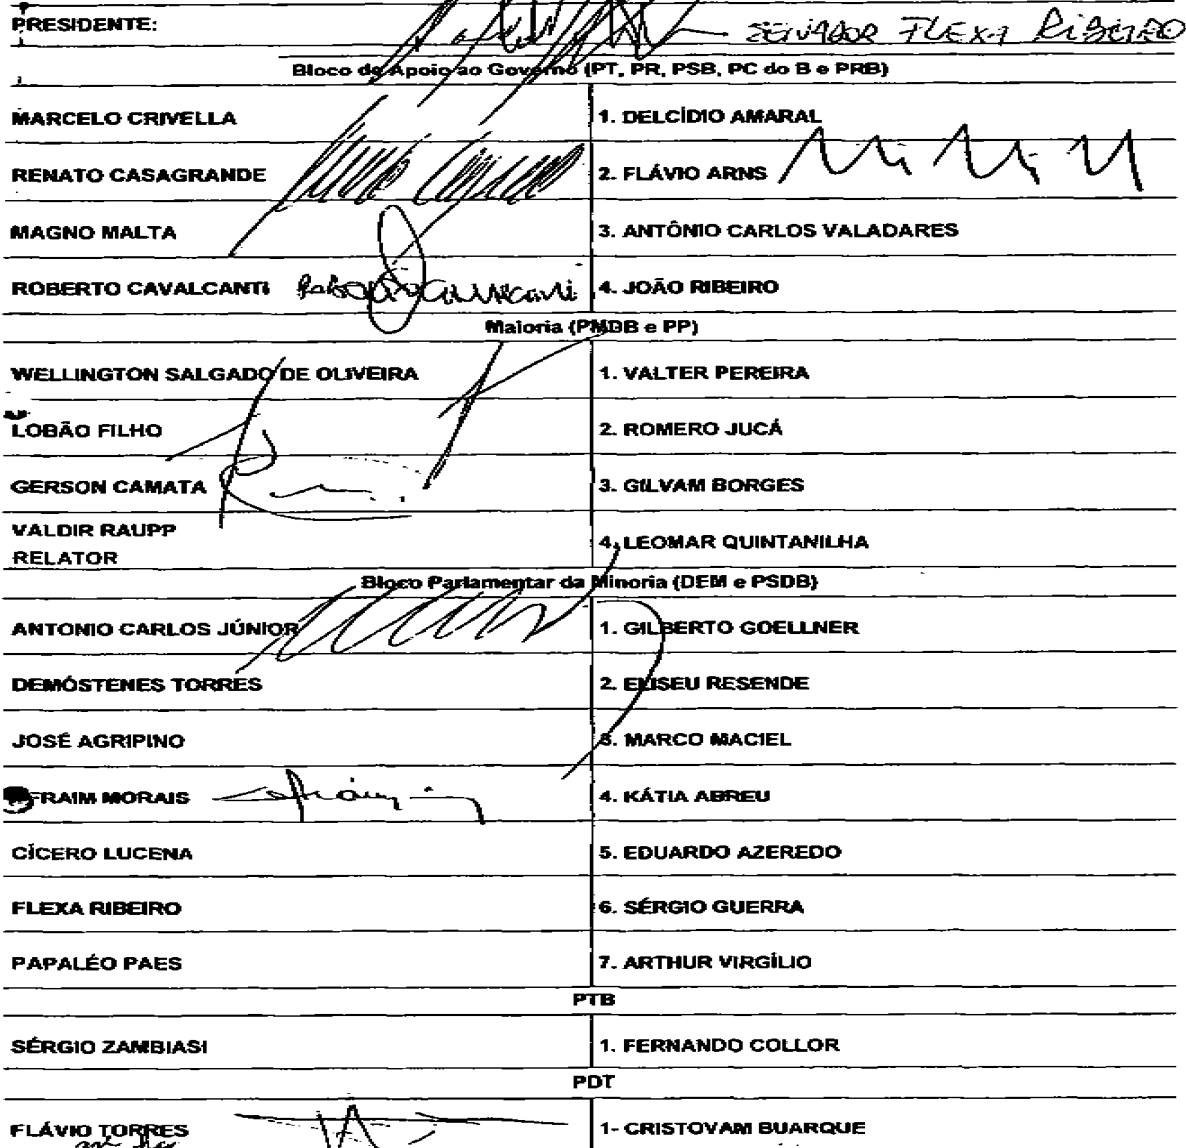 PRESIDENTE: SENADOR FLEXA RIBEIRO
Bloco de Apoio ao Governo (PT, PR, PSB, PC do B e PRB)
MARCELO CRIVELLA 1. DELCÍDIO AMARAL
RENATO CASAGRANDE 2. FLÁVIO ARNS
MAGNO MALTA 3. ANTÔNIO CARLOS VALADARES
ROBERTO CAVALCANTI 4. JOÃO RIBEIRO
Maioria (PMDB e PP)
WELLINGTON SALGADO DE OLIVEIRA 1. VALTER PEREIRA
LOBÃO FILHO 2. ROMERO JUCÁ
GERSON CAMATA 3. GILVAM BORGES
VALDIR RAUPP
RELATOR 4. LEOMAR QUINTANILHA
Bloco Parlamentar da Minoria (DEM e PSDB)
ANTONIO CARLOS JÚNIOR 1. GILBERTO GOELLNER
DEMÓSTENES TORRES 2. ELISEU RESENDE
JOSÉ AGRIPINO 3. MARCO MACIEL
EFRAIM MORAIS 4. KÁTIA ABREU
CÍCERO LUCENA 5. EDUARDO AZEREDO
FLEXA RIBEIRO 6. SÉRGIO GUERRA
PAPALÉO PAES 7. ARTHUR VIRGÍLIO
PTB
SÉRGIO ZAMBIASI 1. FERNANDO COLLOR
PDT
FLÁVIO TORRES 1- CRISTOVAM BUARQUE